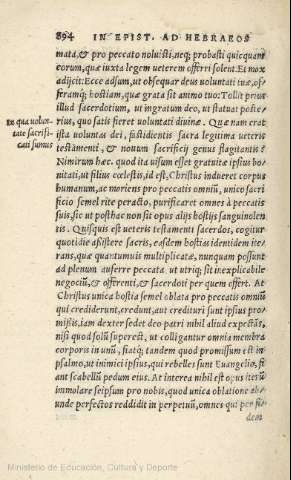 894 IN EPIST. AD HEBRAEOS
mata,& pro peccato noluisti,neq; probasti quicquam
eorum,quæ iuxta legem ueterem offerri solent.Et mox
adijcit:Ecce adsum,ut obsequar deus uoluntati tuæ,of-
feramq; hostiam,quæ grata sit animo tuo:Tollit prius
illud sacerdotium, ut ingratum deo, ut statuat poste-
rius, quo satis fieret uoluntati diuinæ. Quæ nam erat
De qua uolun-
tate sacrifi-
cati sumus
ista uoluntas dei, fastidientis sacra legitima ueteris
testamenti, & nouum sacrificij genus flagitantis?
Nimirum hæc. quod ita uisum esset gratuitæ ipsius bo-
nitati,ut filius cœlestis,id est,Christus indueret corpus
humanum, ac moriens pro peccatis omniũ, unico sacri
ficio semel rite peracto, purificaret omnes à peccatis
suis,sic ut posthac non sit opus alijs hostijs sanguinolen
tis. Quisquis est ueteris testamenti sacerdos, cogitur
quotidie assistere sacris, easdem hostias identidem ite
rans,quæ quantumuis multiplicatæ, nunquam possunt
ad plenum auferre peccata ut utriq; sit inexplicabile
negociũ,& offerenti,& sacerdoti per quem offert. At
Christus unica hostia semel oblata pro peccatis omniũ
qui crediderunt,credunt,aut credituri sunt ipsius pro
missis,iam dexter sedet deo patri nihil aliud expectãs,
nisi quod solũ superest, ut colligantur omnia membra
corporis in unũ, fiatq; tandem quod promissum est in
psalmo,ut inimici ipsius,qui rebelles sunt Euangelio, fi
ant scabellũ pedum eius. At interea nihil est opus iterũ
immolare seipsum pro nobis,quod unica oblatione ab-
unde perfectos reddidit in perpetuũ,omnes qui per fi-
dem
Ministerio de Educación, Cultura y Deporte